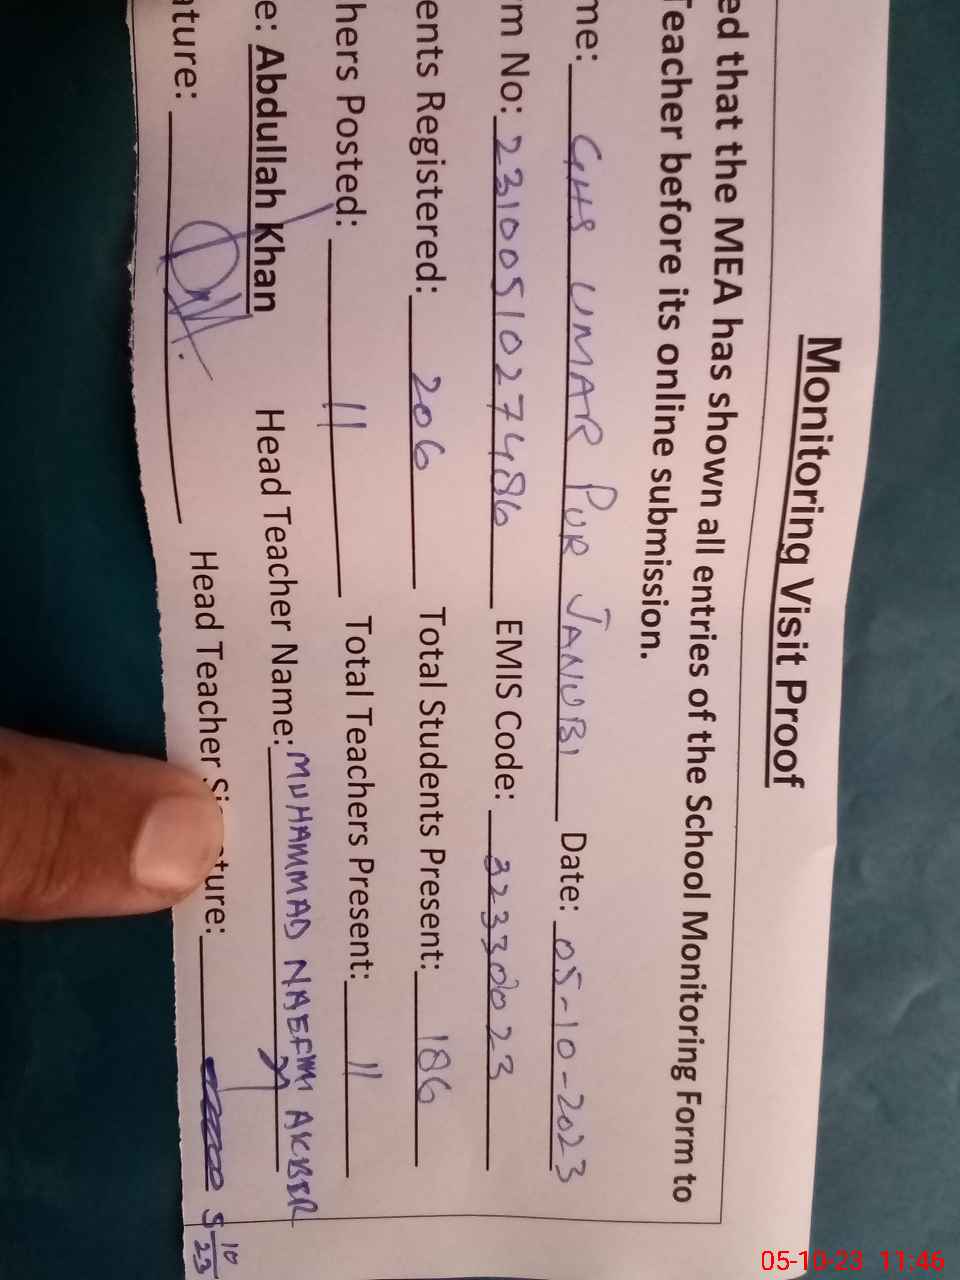 Monitoring Visit Proof
ed that the MEA has shown all entries of the School Monitoring Form to
Teacher before its online submission.
me: GHS UMAR PUR JANUBI Date: 05-10-2023
rm No: 2310051027486 EMIS Code: 32330023
ents Registered: 206 Total Students Present: 186
hers Posted: 11 Total Teachers Present: 11
e: Abdullah Khan Head Teacher Name: MUHAMMAD NAEEM AKBER
ature: Head Teacher Si ture:
5 10 23
05-10-23 11:46